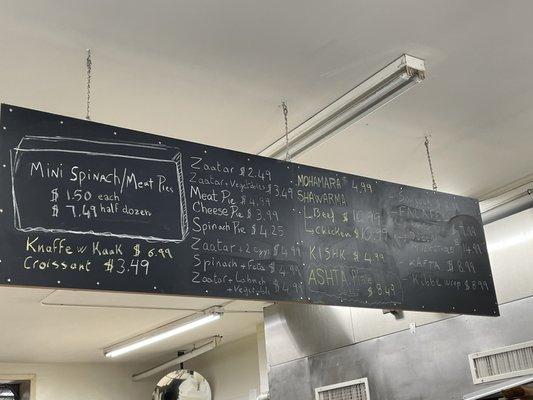 Mini Spinach/Meat Pies
$1.50 each
$7.49 half dozen
Knaffe w Kaak $6.99
Croissant $3.49
Zaatar $2.49
Zaatar+Vegetables $3.49
Meat Pie $4.99
Cheese Pie $3.99
Spinach Pie $4.25
Zaatar+2 egg $4.99
Spinach+Feta $4.99
Zaatar+Labneh
+Vegetable $4.99
MOHAMARA $4.99
SHAWARMA
Beef $10.99
Chicken $10.99
KISHK $4.99
ASHTA
KAFTA $8.99
wrap $8.99